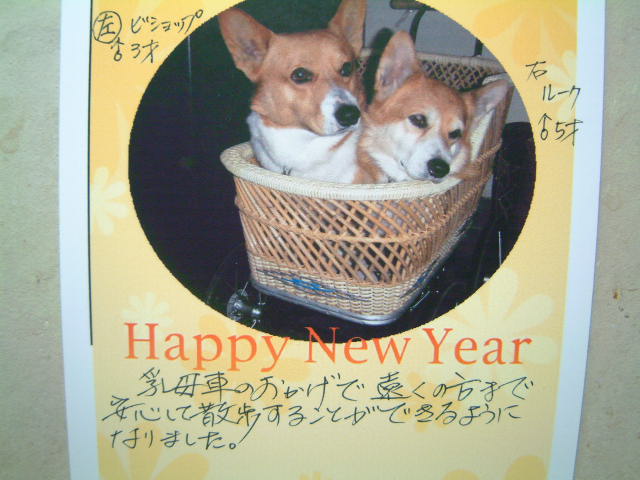 左 ビショップ
♂3才
右
ルーク
♂5才
Happy New Year
乳母車のおかげで遠くの方まで
安心して散歩することができるように
なりました。